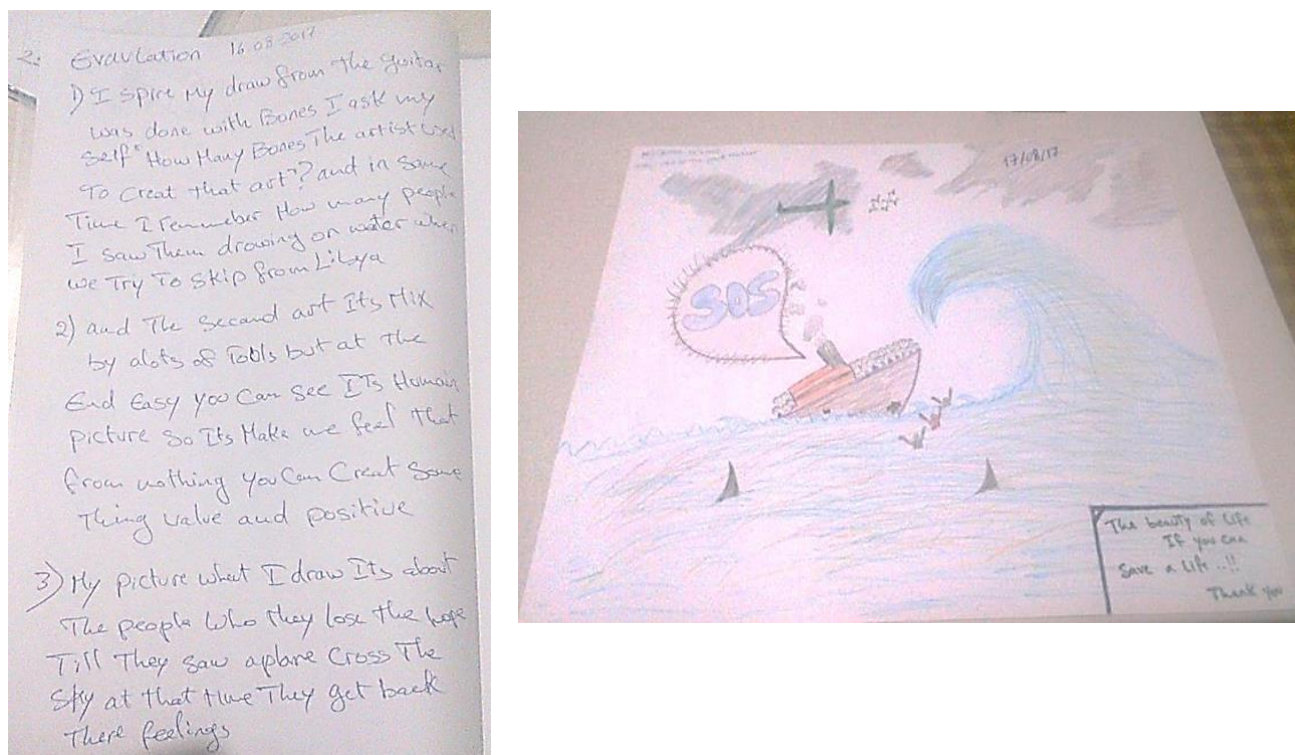 2. Evaulation 16.08.2017
1) I spire My draw from The guitar
was done with Bones I ask my
self "How Many Bones The artist used
To Creat that art"? and in same
Time I remmeber How many people
I saw Them drawing on water when
we Try To Skip from Libya
2) and The second art Its Mix
by alots of Tools but at the
End Easy you Can See ITs Human
picture So Its Make we feel that
from nothing you Can Creat Some
Thing value and positive
3) My picture what I draw Its about
The people Who they lose the hope
Till They saw aplane Cross The
Sky at that time They get back
There feelings
17/08/17
SOS
The beauty of Life
If you can
Save a Life ..!!
Thank you